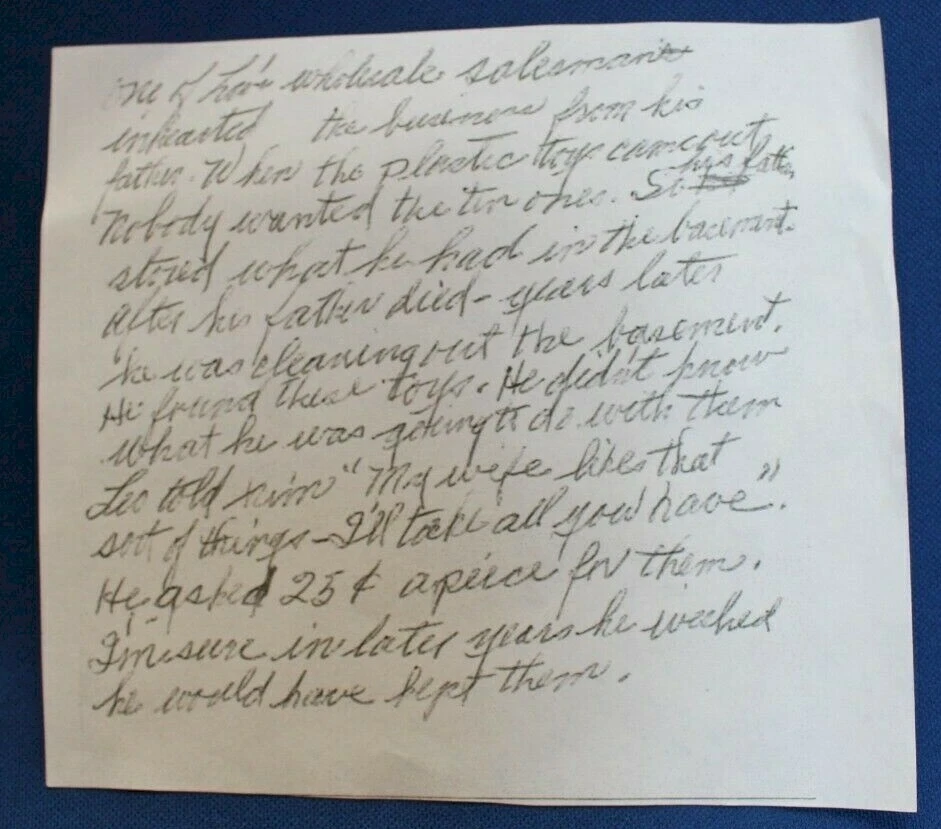 one of Leo's wholesale salesman
inhearted the business from his
father. When the plastic toys came out
nobody wanted the tin ones. So his father
stored what he had in the basement.
After his father died - years later
he was cleaning out the basement.
He found these toys. He didn't know
what he was going to do with them
Leo told him "My wife likes that
sort of things - I'll take all you have".
He asked 25¢ a peice for them.
I'm sure in later years he wished
he would have kept them.